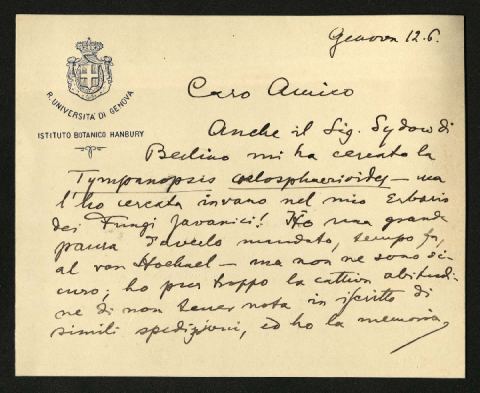 Genova 12.6.
R. UNIVERSITA' DI GENOVA
ISTITUTO BOTANICO HANBURY
Caro Amico
Anche il Sig. Sydow di
Berlino mi ha cercato la
Tympanopsis coelosphaerioides — ma
l'ho cercata invano nel mio Erbario
dei Fungi Javanici! Ho una grande
paura d'averlo mandato, tempo fa,
al von Hoehnel — ma non ne sono si-
curo; ho pur troppo la cattiva abitudi-
ne di non tener nota in iscritto di
simili spedizioni, ed ho la memoria